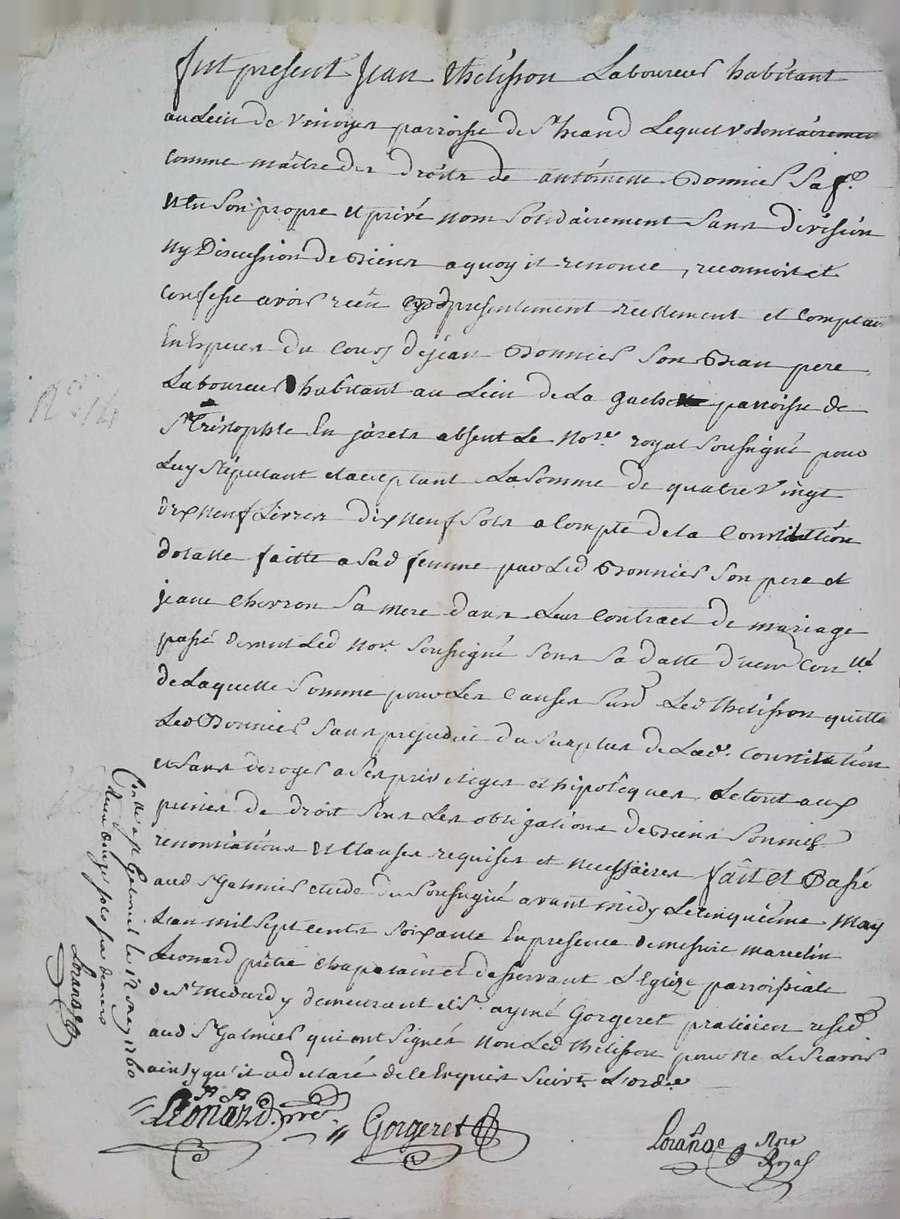 fut present Jean thelisson Laboureur habitant
au Lieu de parroisse de St heand Lequel volontairement
comme maître des droits de antoinette Bonnier Sa fe.
et en Son propre et privé nom Solidairement Sans division
ny Discussion de Biens a quoy il renonce, reconnoit et
confesse avoir reçu presentement reellement et comptant
En Especes du Cours de jean Bonnier Son Beau pere
Laboureur habitant au Lieu de La parroisse de
St Cristophle En jarets absent Le Nore. royal Soussigné pour
Luy Stipulant et acceptant La Somme de quatre Vingt
dix neuf Livres dix neuf Sols a Compte de la Constitution
dotalle faitte a Sad femme par Led Bonnier Son pere et
jeane Chovron Sa mere dans Leur Contract de mariage
passé devant Led Nore Soussigné Sous Sa datte duem Conllé
de Laquelle Somme pour Les Causes Susd Led thelisson quitte
Led Bonnier Sans prejudice du Surplus de Lade. Constitution
et Sans deroger a Ses privileges et hipoteques Le tout aux
peines de droit Sous Les obligations de Biens Soumis.
renonciations et Clauses requises et necessaires fait et Passé
aud St Galmier etude du Soussigné avant midy Le cinquième May
L'an mil Sept cents Soixante En presence de messire marcelin
Leonard prêtre chapelain et desservant L'Eglize parroissiale
de St medard y demeurant et Sr. aymé Gorgeret praticien resid
aud St Galmier qui ont Signés non Led thelisson pour ne Le Scavoir
ainsy qu'il a declaré de ce Enquis Suivt. L'orde
Léonard, ptre Gorgeret Lorange Nore
Royal
Conlle a St Galmier le 12 may 1760
Reçu douze sols six deniers
Lorange
No 14